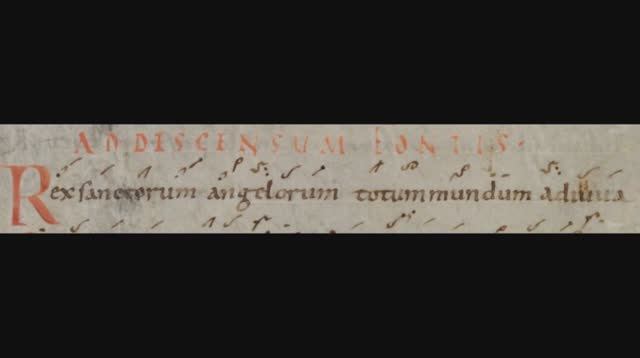 AD DISCENSUM FONTIS.
Rex sanctorum angelorum totum mundum adiuua